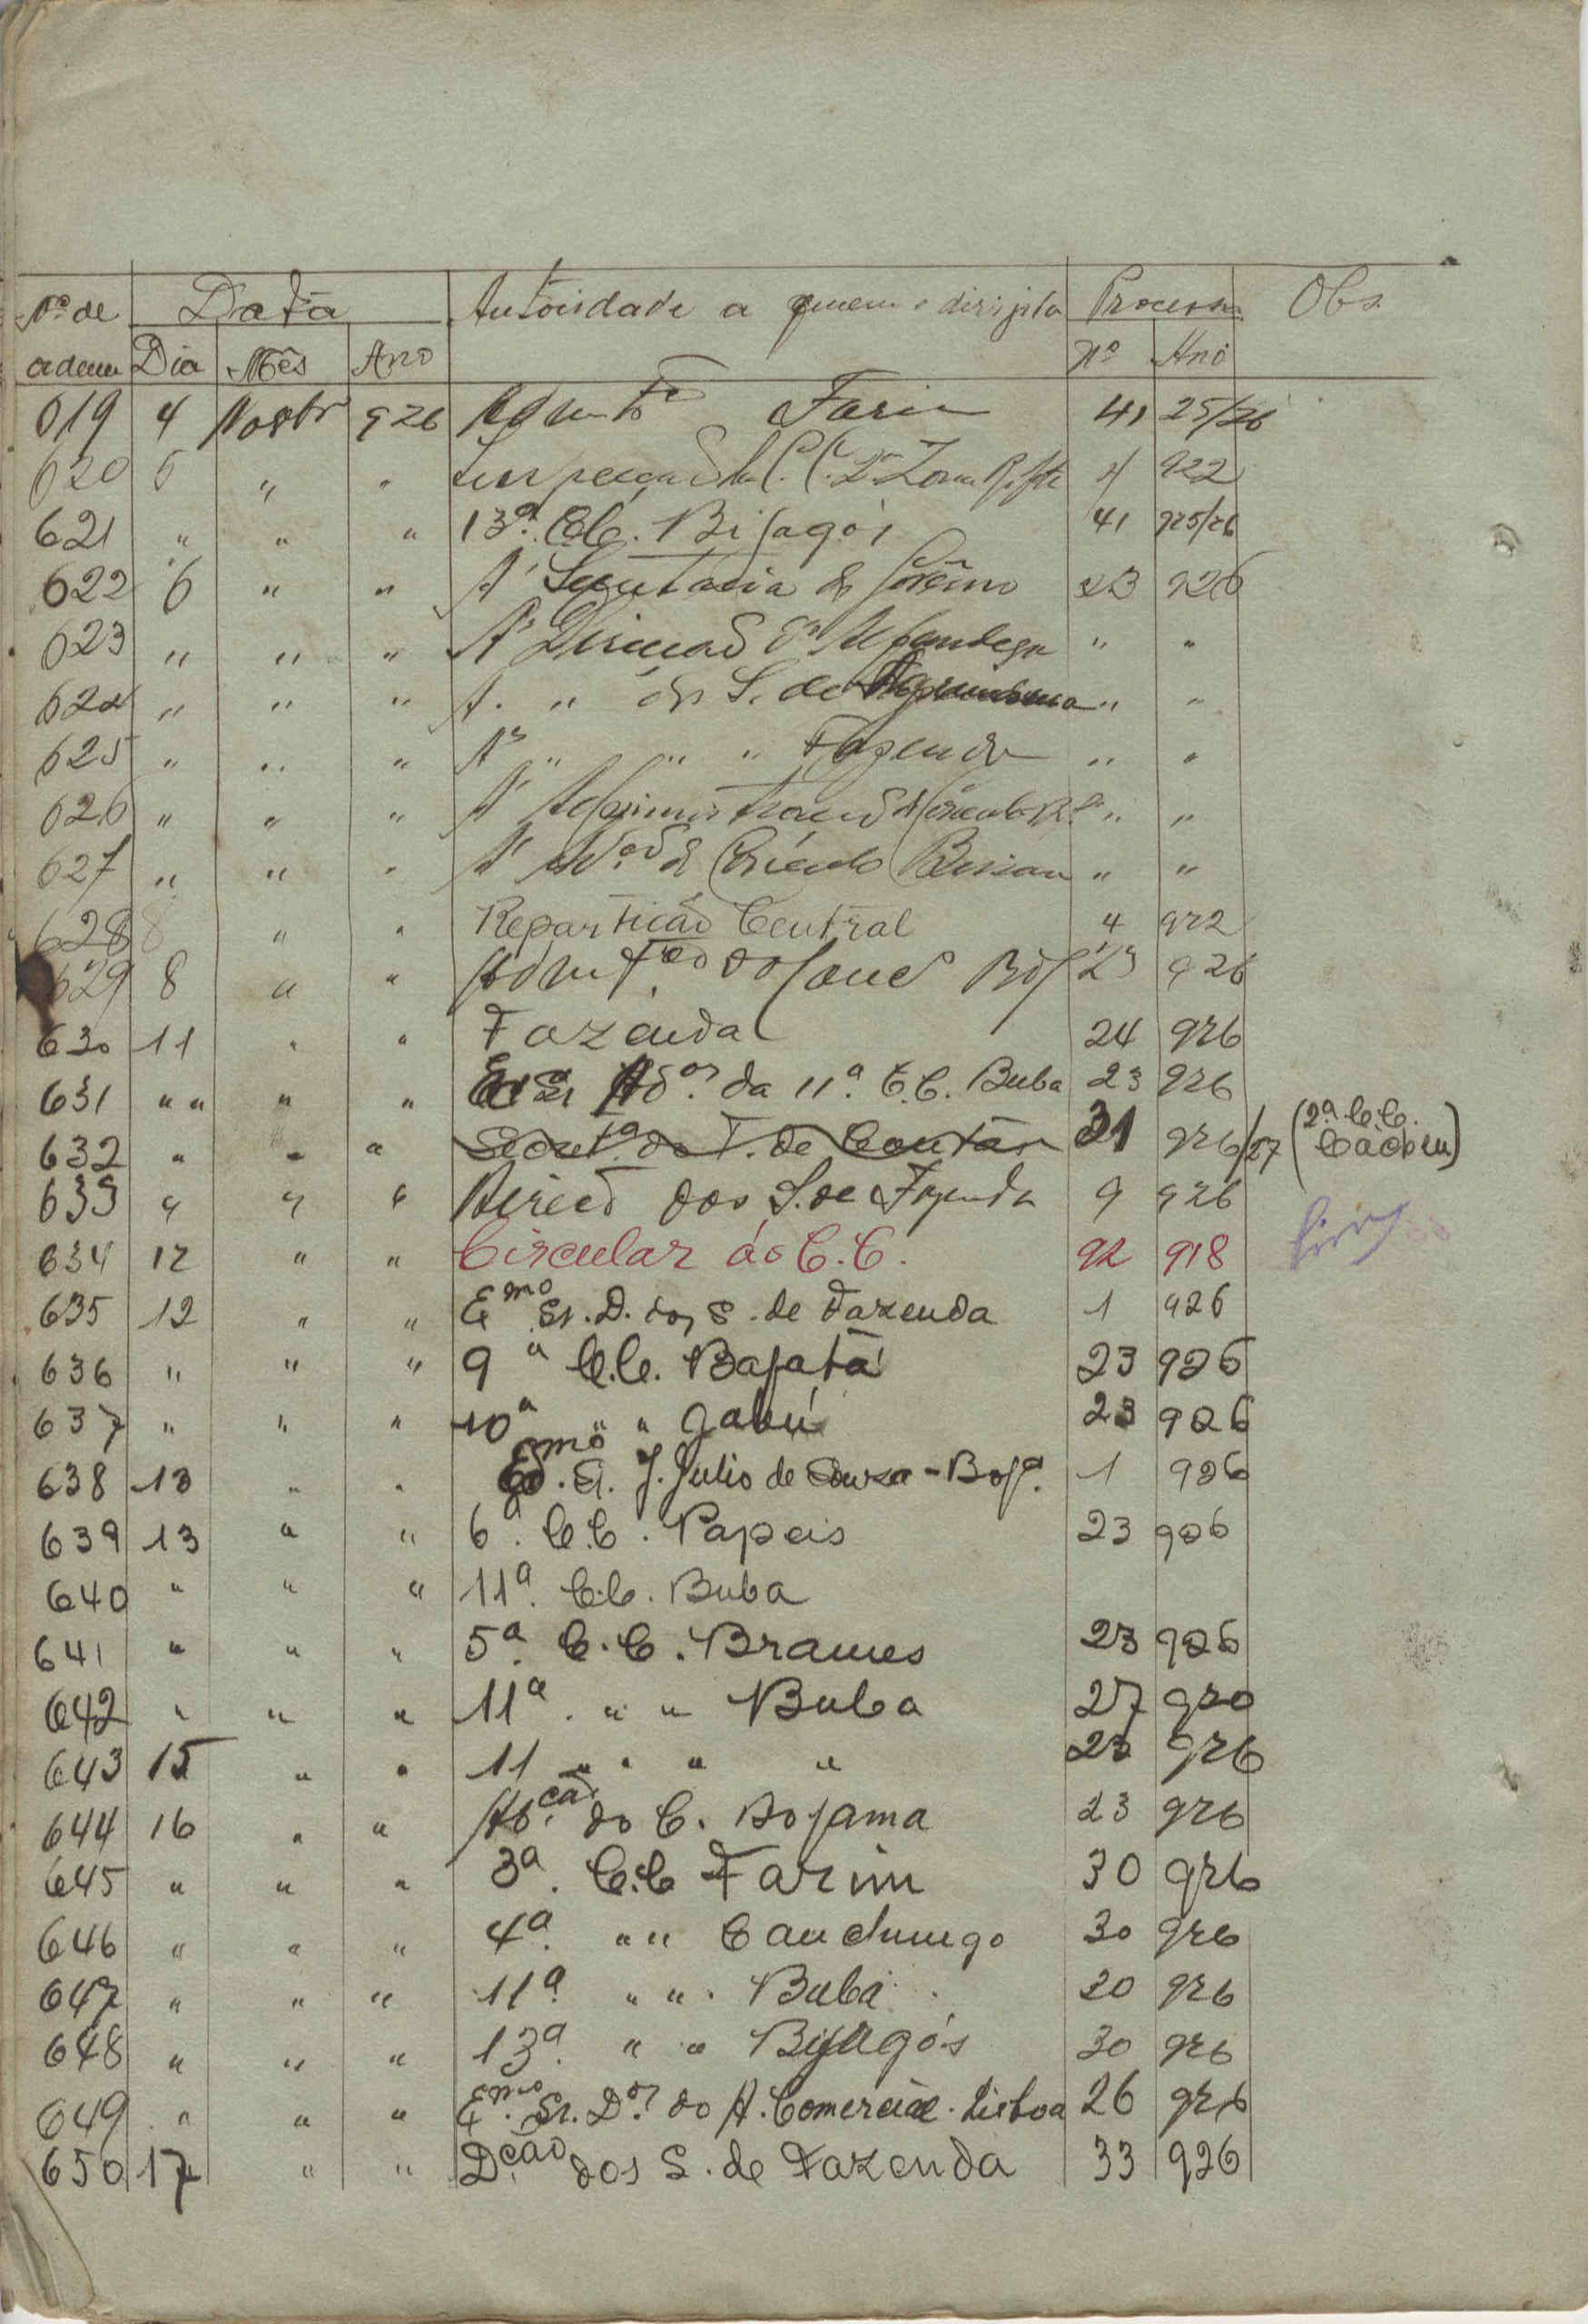 Nº de Data Autoridade a quem é dirijida Processo Obs.
ordem Dia Mês Ano Nº Ano
619 4 Novbr 926 Farim 41 25/26
620 5 " " 4 922
621 " " " 13ª C.C. Bijagós 41 925/26
622 6 " " A' Secretaria do Govêrno 23 926
623 " " " A' Direcção d' Alfandega " "
624 " " " A. " dos S. de " "
625 " " " A' " " " Fazenda " "
626 " " " A' Administração " "
627 " " " A' do Circulo Bissau " "
628 8 " " Repartição Central 4 922
629 8 " " 23 926
630 11 " " Fazenda 24 926
631 " " " " Sr Adºr. da 11ª C.C. Buba 23 926
632 " " " Secretª do T. de Contas 31 926/27 (2ª C.C. Cacheu)
633 " " " Direcç dos S. de Fazenda 9 926
634 12 " " Circular ás C.C. 92 918
635 12 " " Emo Sr. D. dos S. de Fazenda 1 926
636 " " " 9ª C.C. Bafatá 23 926
637 " " " 10ª " " Gabú 23 926
638 13 " " Emo. Sr. J. Julio de Souza - Bofª. 1 926
639 13 " " 6ª. C.C. Papeis 23 926
640 " " " 11ª. C.C. Buba
641 " " " 5ª. C.C. Brames 23 926
642 " " " 11ª. " " Buba 27 920
643 15 " " 11 " " " " 23 926
644 16 " " do C. Bojama 23 926
645 " " " 3ª. C.C Farim 30 926
646 " " " 4ª. " " Canchungo 30 926
647 " " " 11ª. " " Buba 30 926
648 " " " 13ª. " " Bijagós 30 926
649 " " " Emo. Sr. Dor. do A. Comercial. Lisboa 26 926
650 17 " " Dção dos S. de Fazenda 33 926